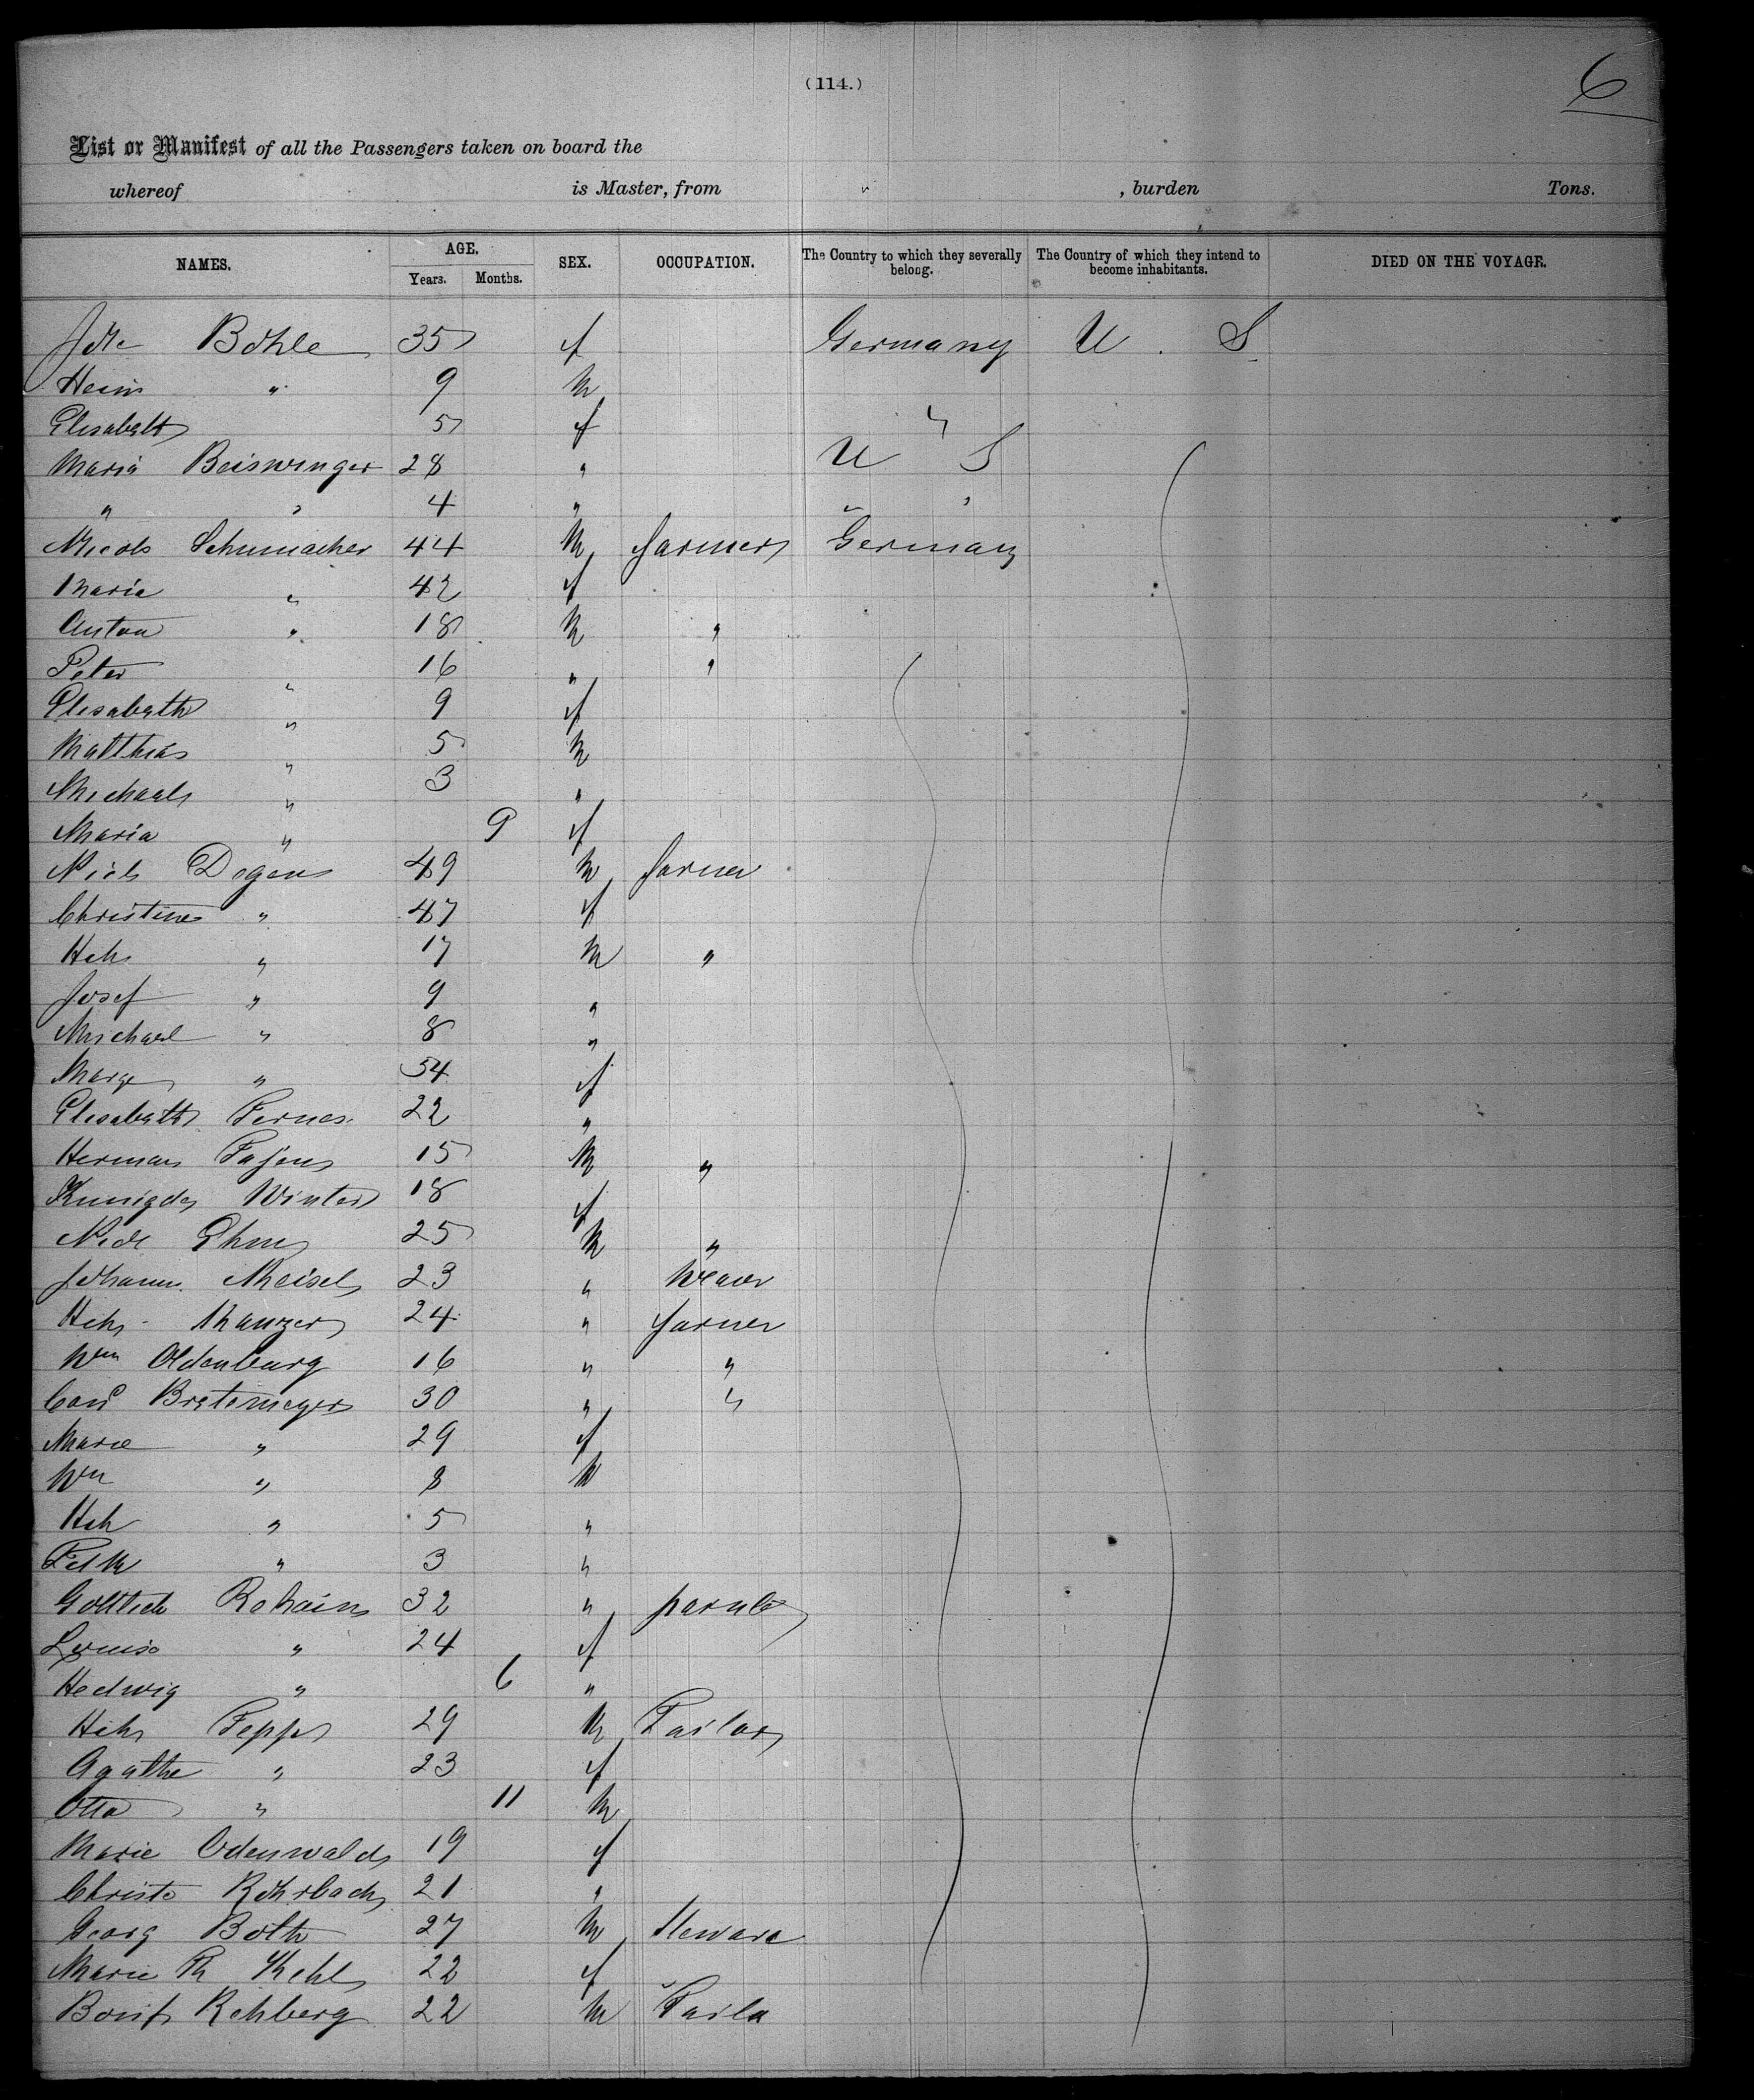 (114.)
6
List or Manifest of all the Passengers taken on board the
whereof is Master, from , burden Tons.
NAMES. AGE. SEX. OCCUPATION. The Country to which they severally belong. The Country of which they intend to become inhabitants. DIED ON THE VOYAGE.
Years. Months.
Böhle 35 f Germany U. S
Heins " 9 M
Elisabeth 5 f "
Maria Beiswenger 28 " U S
" " 4 " " "
Nicols Schumacher 44 M farmer Germany
Maria " 42 f
Anton " 18 M "
Peter " 16 " "
Elisabeth " 9 f
Matthias " 5 M
Michael " 3 "
Maria " 9 f
Degens 49 M farmer
Christine " 47 f
Hch " 17 M "
Josef " 9 "
Michael " 8 "
Marg " 54 f
Elisabeth Fernes 22 "
Herman Fajens 15 M "
Winter 18 f
25 M "
Johann Meisel 23 " Weaver
Hch 24 " farmer
Wm Oldenburg 16 " "
Carl 30 " "
Marie " 29 f
Wm " 8 M
Hch " 5 "
" 3 "
Gottlieb 32 "
Louise " 24 f
Hedwig " 6 "
Hch Pepper 29 M Tailor
Agathe " 23 f
Otto " 11 M
Marie Odenwald 19 f
Christe Röhrbach 21 "
Georg Both 27 M
Marie Th Kehl 22 f
Bonif Rehberg 22 M Taila